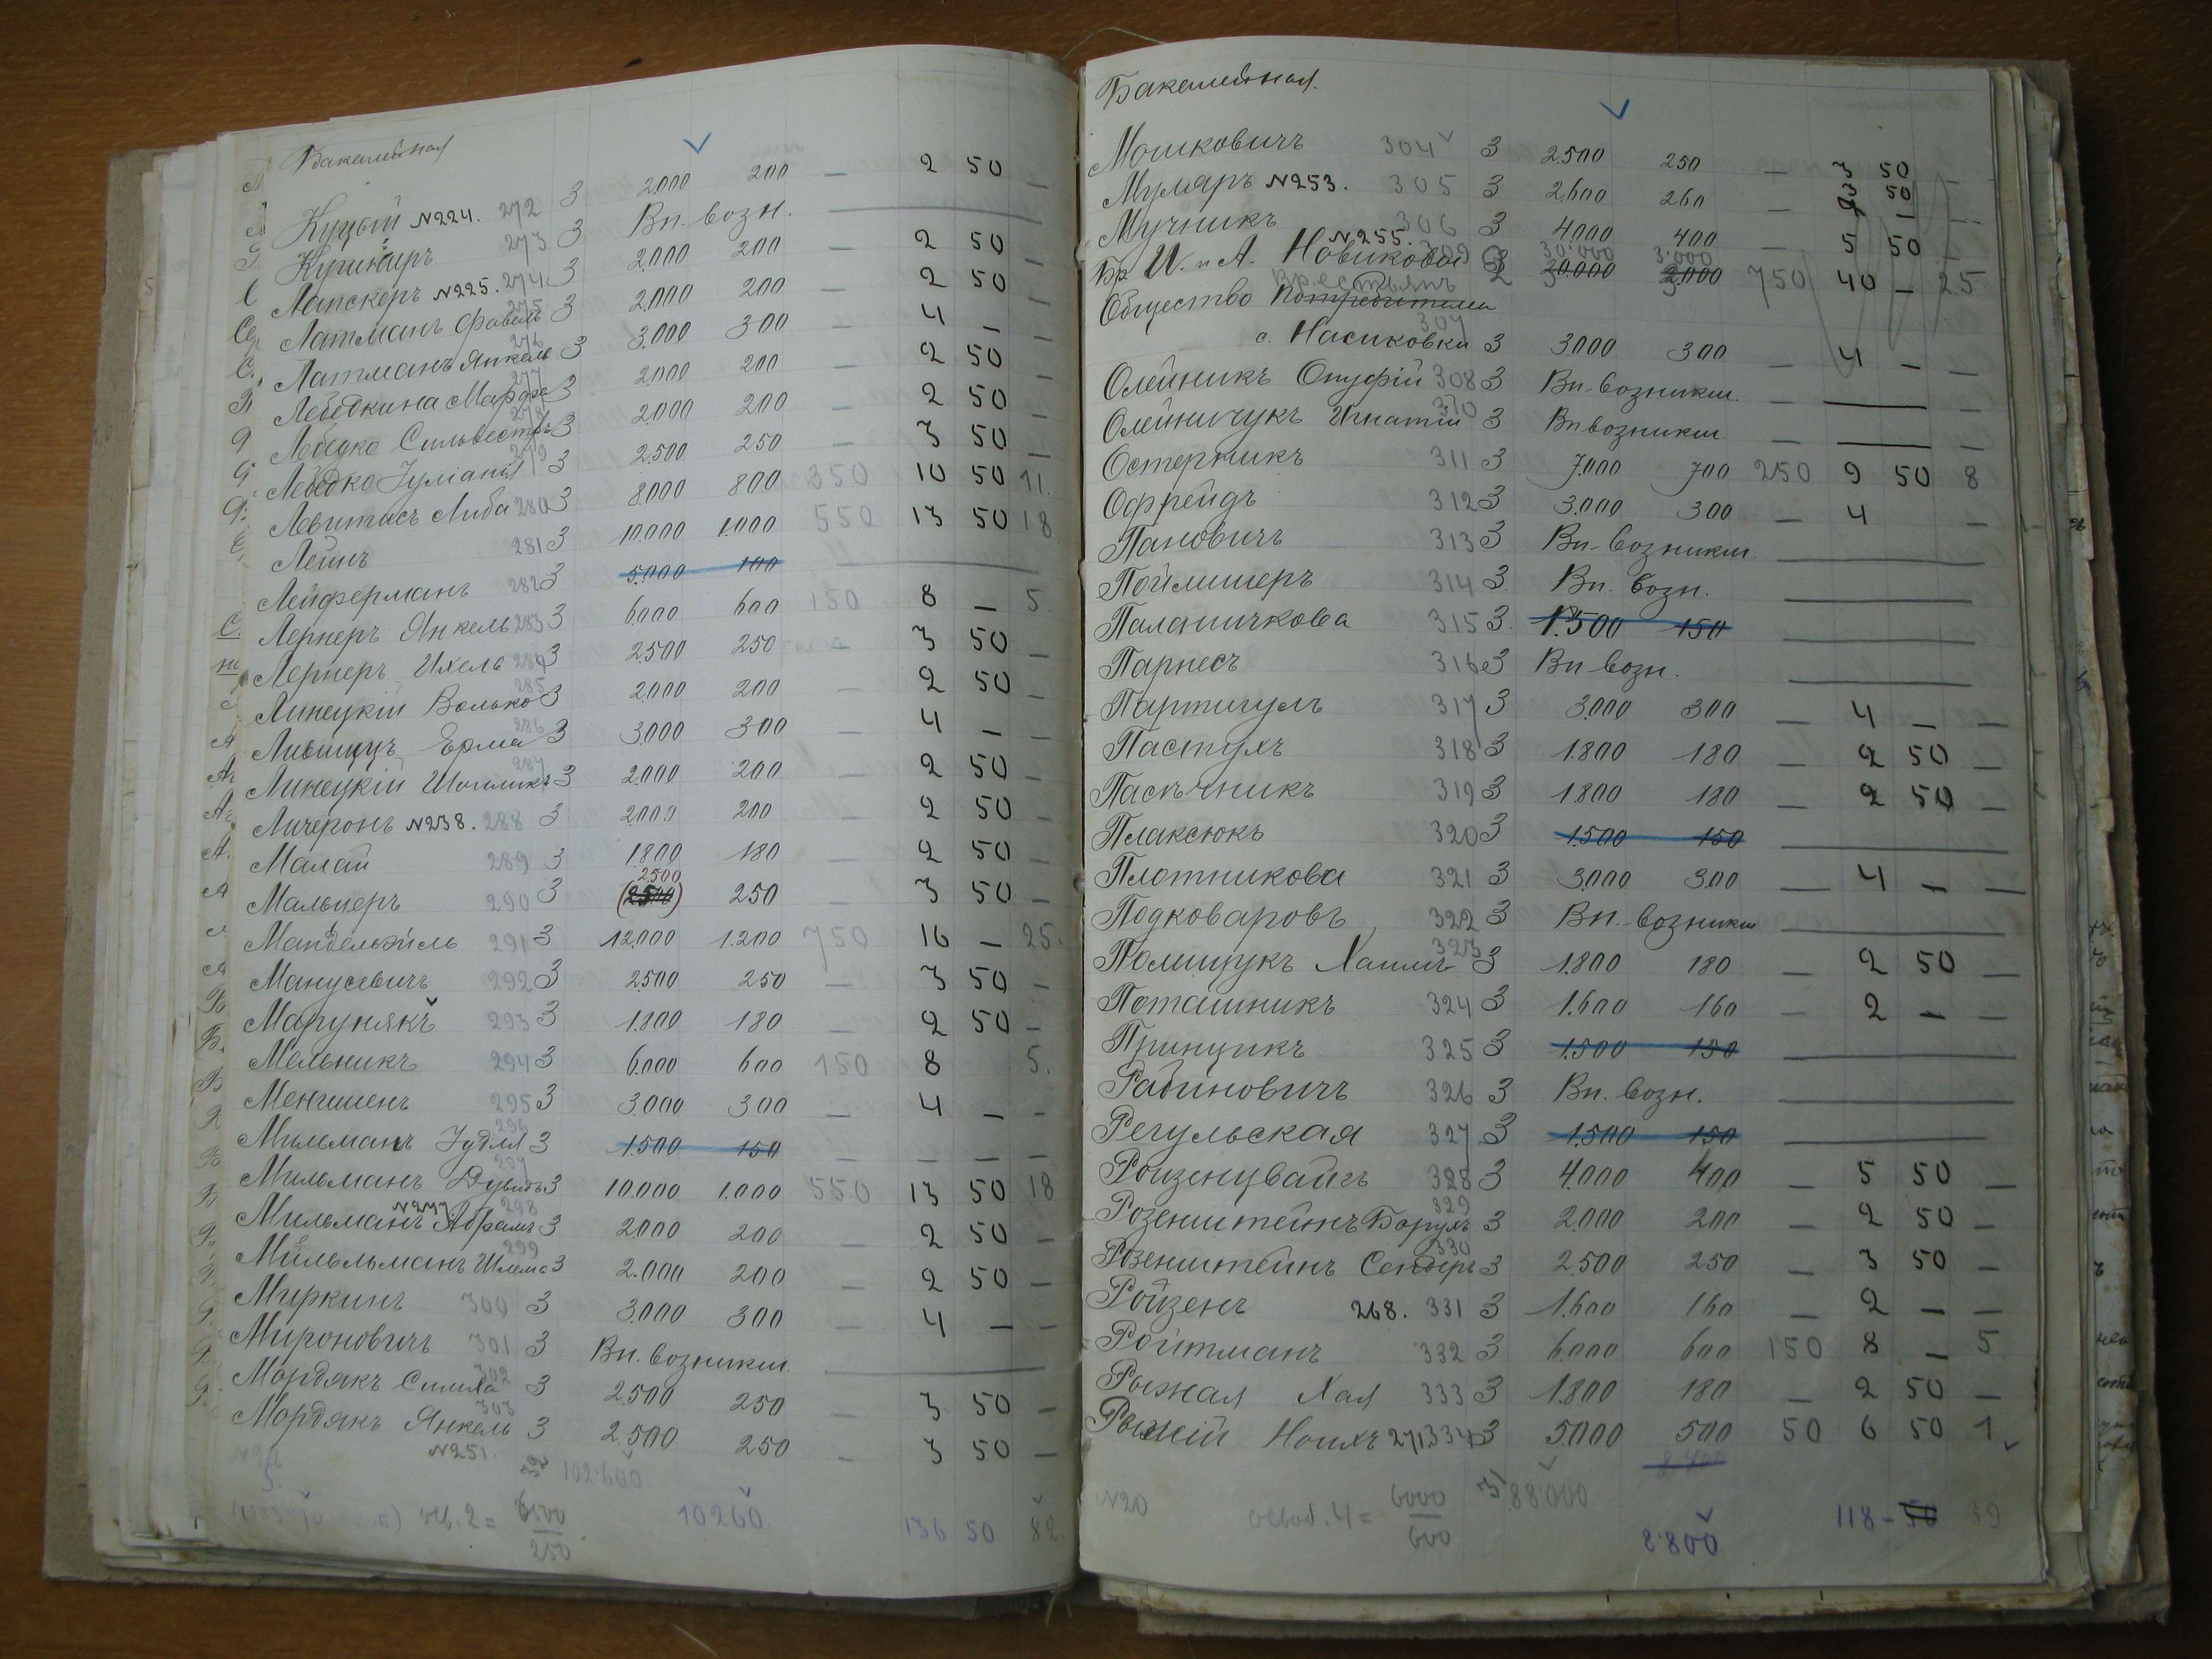 Бакалейная
Куцый №224. 272 3 2.000 200 — 2 50 —
273 3 Вп. возн.
Лапскеръ №225. 274 3 2.000 200 — 2 50 —
Латманъ 275 3 2.000 200 — 2 50 —
Латманъ Янкель 276 3 3.000 300 — 4 — —
Лебедкина Марфа 277 3 2.000 200 — 2 50 —
Сильвестръ 278 3 2.000 200 — 2 50 —
Лебедко 279 3 2.500 250 — 3 50 —
Левитасъ Либа 280 3 8.000 800 350 10 50 11.
Лейнъ 281 3 10.000 1.000 550 13 50 18
Лейферманъ 282 3 5.000 100
Лернеръ Янкель 283 3 6.000 600 150 8 — 5.
Лернеръ Ихель 284 3 2.500 250 3 50 —
Линецкій Волько 285 3 2.000 200 — 2 50 —
Лившицъ Ерма 286 3 3.000 300 — 4 — —
Линецкій 287 3 2.000 200 — 2 50 —
Личеронъ №238. 288 3 2.000 200 — 2 50 —
Малай 289 3 1.800 180 — 2 50 —
Мальцеръ 290 3 2.500 (2500) 250 — 3 50 —
Мандельэйль 291 3 12.000 1.200 750 16 — 25.
Манусевичъ 292 3 2.500 250 — 3 50 —
Марунякъ 293 3 1.800 180 — 2 50 —
Мельникъ 294 3 6.000 600 150 8 5.
295 3 3.000 300 — 4 — —
Мильманъ Іудля 296 3 1.500 150 — — — —
Мильманъ Дувидъ 297 3 10.000 1.000 550 13 50 18
Мильманъ Абрамъ 298 3 2.000 200 — 2 50 —
Мильльманъ Шлема 299 3 2.000 200 — 2 50 —
Миркинъ 300 3 3.000 300 — 4 — —
Мироновичъ 301 3 Вп. возникш.
Мордякъ Симха 302 3 2.500 250 — 3 50 —
Мордякъ Янкель 303 3 2.500 250 — 3 50 —
№251.
102.600
10260. 136 50 82
250
Бакалейная.
Мошковичъ 304 3 2.500 250 — 3 50 —
Муляръ №253. 305 3 2.600 260 — 3 50 —
Мучникъ 306 3 4.000 400 — 5 50 —
№255.
30.000 3.000
Бр. И. и А. Новиковы 2 20.000 2.000 750 40 — 25
Крестьянъ
Общество Потребителей
307
с. Носиковки 3 3.000 300 — 4 — —
Олейникъ Онуфрій 308 3 Вп. возникш. — —
Олейничукъ Игнатій 310 3 Вп возникш — —
Остерникъ 311 3 7.000 700 250 9 50 8
Офрейдъ 312 3 3.000 300 — 4 —
Пановичъ 313 3 Вп. возникш.
Поймшеръ 314 3 Вп. возн.
Паланичкова 315 3 1.500 150
Парнесъ 316 3 Вп возн.
Партигулъ 317 3 3.000 300 — 4 — —
Пастухъ 318 3 1.800 180 — 2 50 —
Пасѣчникъ 319 3 1.800 180 — 2 50 —
Плаксюкъ 320 3 1.500 150
Плотникова 321 3 3.000 300 — 4 — —
Подковаровъ 322 3 Вп. возникш
Полищукъ Хаимъ 323 3 1.800 180 — 2 50 —
Поташникъ 324 3 1.600 160 — 2 — —
Принцикъ 325 3 1.500 150
Рабиновичъ 326 3 Вп. возн.
Регульская 327 3 1.500 150
Ройзенцвайгъ 328 3 4.000 400 — 5 50 —
Розенштейнъ Борухъ 329 3 2.000 200 — 2 50 —
Розенштейнъ Сендеръ 330 3 2.500 250 — 3 50 —
Ройзенъ 268. 331 3 1.600 160 — 2 — —
Ройтманъ 332 3 6.000 600 150 8 — 5
Рыжая Хая 333 3 1.800 180 — 2 50 —
Рыжій Ноихъ 271 334 3 5.000 500 50 6 50 1
№20 освоб. 4 = 6000 88.000
600 8.800 118 - 50 39